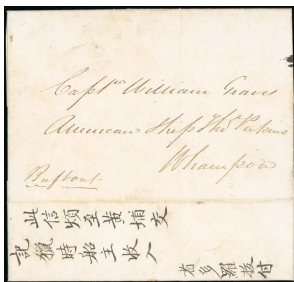 Captn William Graves
American Ship Thos Perkins
Whampoa
此信煩至黃埔交
記獵時船主收入
省多羅披付